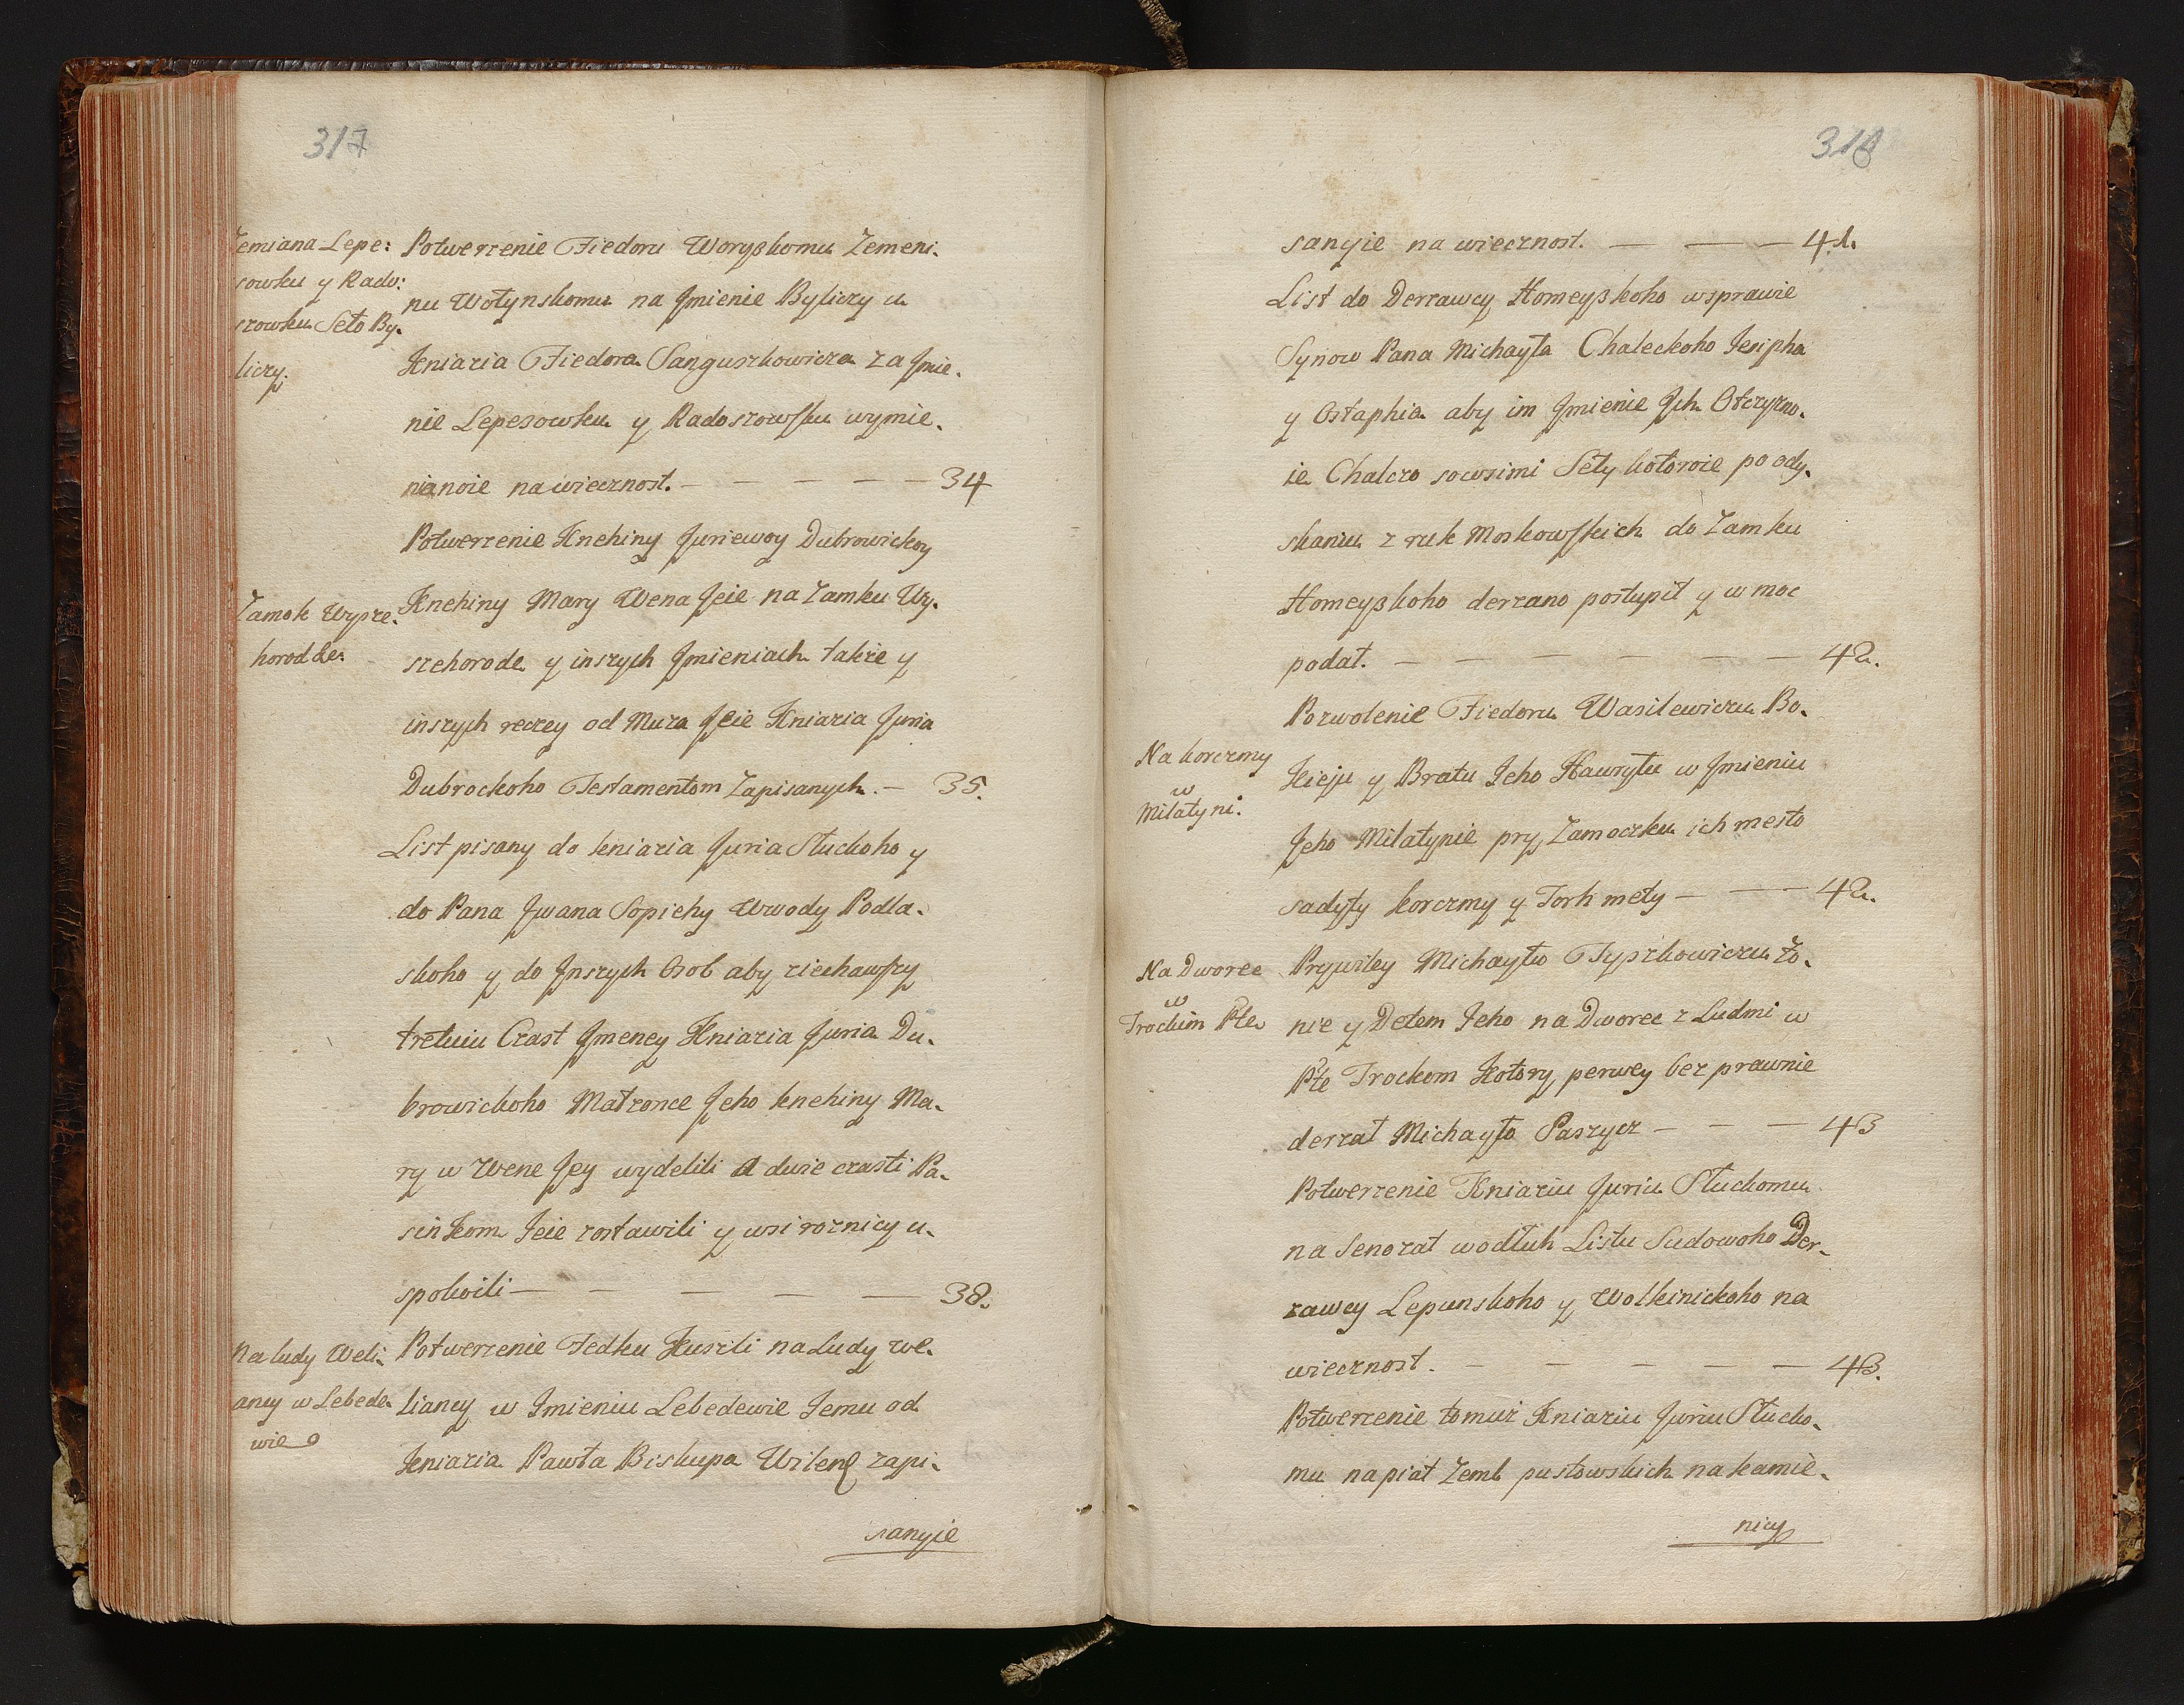 317
Zemiana Lepe:
sowku y Rado:
szowku Seło By.
liczy.
Potwerzenie Fiedoru Woryskomu Zemeni.
nu Wołynskomu na Jmienie Byliczy u
Kniazia Fiedora Sanguszkowicza za Jmie.
nie Lepesowku y Radoszowsku wymie.
nianoie na wiecznost. — — — — — 34
Potwerzenie Knehiny Juriewoy Dubrowickoy
Zamok Wysze.
horodde.
Knehiny Mary Wena Jeie na Zamku Wy.
szehorode y inszych Jmieniach także y
inszych reczey od Muza Jeie Kniazia Juria
Dubrockoho Testamentom Zapisanych. — 35.
List pisany do kniazia Juria Słuckoho y
do Pana Jwana Sopiehy Wwody Podla.
skoho y do Jnszych Osob aby ziechawszy
tretuiu Czast Jmeney Kniazia Juria Du.
browickoho Małzonce Jeho knehiny Ma.
ry w Wene Jey wydelili a dwie czasti Pa.
sinkom Jeie zostawili y wsi roznicy u.
spokoili — — — — — 38.
Na ludy Weli.
ancy w Lebede.
wie
Potwerzenie Fedku Kuszli na Ludy we.
liancy w Jmieniu Lebedewie Jemu od
kniazia Pawła Biskupa Wilen zapi.
sanyie
318
sanyie na wiecznost. — — — 41.
List do Derzawcy Homeyskoho wsprawie
Synow Pana Michayła Chaleckoho Jesipha
y Ostaphia aby im Jmienie Jch Otczyzno.
ie Chalczo sowsimi Seły kotoroie po ody.
skaniu z ruk Moskowskich do Zamku
Homeyskoho derzano postupił y w moc
podał. — — — — — — 42.
Na korczmy
w
Milatyni.
Pozwolenie Fiedoru Wasilewiczu Bo.
kieju y Bratu Jeho Hawryłu w Jmieniu
Jeho Milatynie pry Zamoczku ich mesto
sadyty korczmy y Torh mety — — 42.
Na Dworec
w
Trockim Pte
Prywiley Michayłu Tyszkowiczu Żo.
nie y Detem Jeho na Dworec z Ludmi w
Pte Trockom Kotory perwey bez prawnie
derzał Michayło Paszycz — — — 43
Potwerzenie Kniaziu Juriu Słuckomu
na Senozat wodłuh Listu Sudowoho Der.
zawcy Lepunskoho y Wolkinickoho na
wiecznost. — — — — — 43.
Potwerzenie tomuż Kniaziu Juriu Słucko.
mu na piat Zemł pustowskich na kamie.
nicy